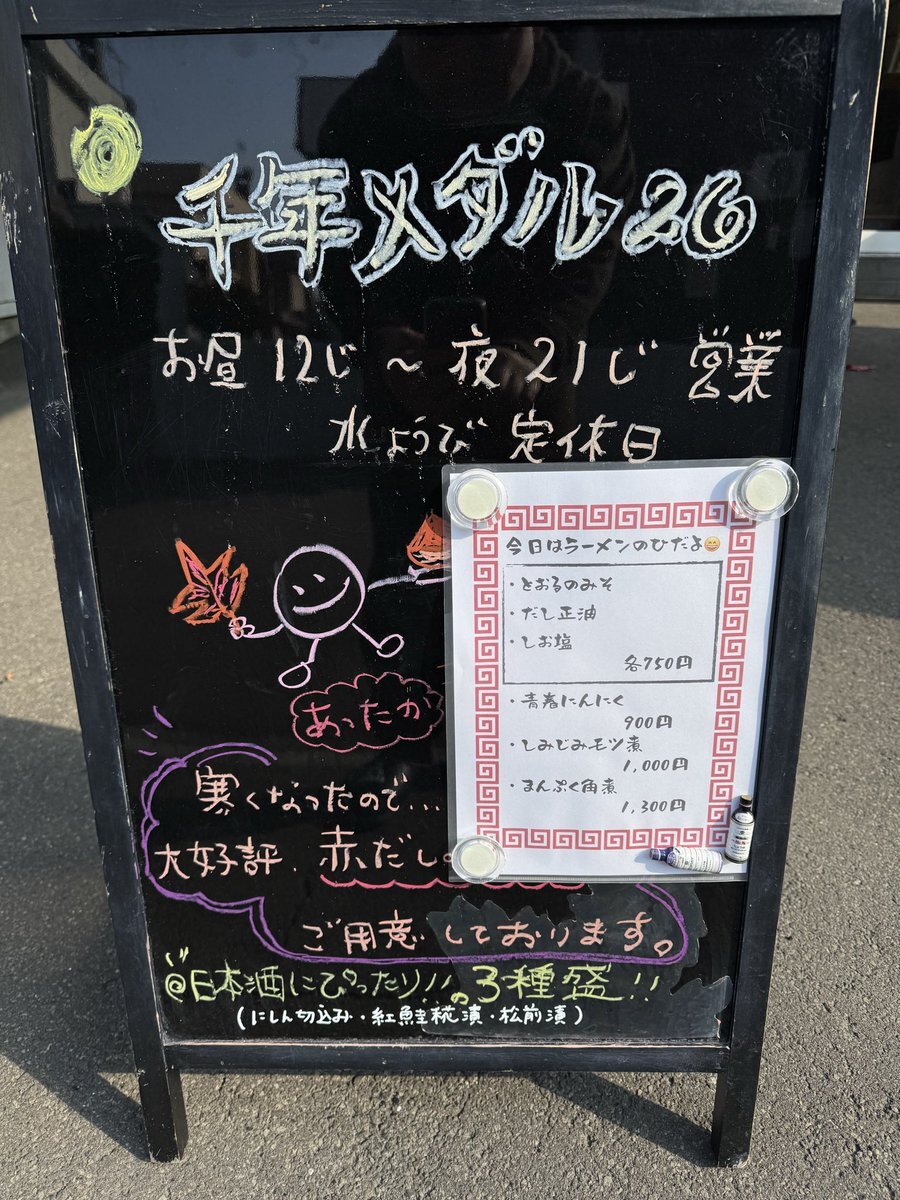 千年メダル26
お昼12じ～夜21じ営業
水ようび定休日
今日はラーメンのひだよ😄
・とおるのみそ
・だし正油
・しお塩
各750円
・青春にんにく
900円
・しみじみモツ煮
1,000円
・まんぷく角煮
1,300円
あったか
寒くなったので…
大好評、赤だし。
ご用意しております。
@日本酒にぴったり!!の3種盛!!
(にしん切込み・紅鮭糀漬・松前漬)